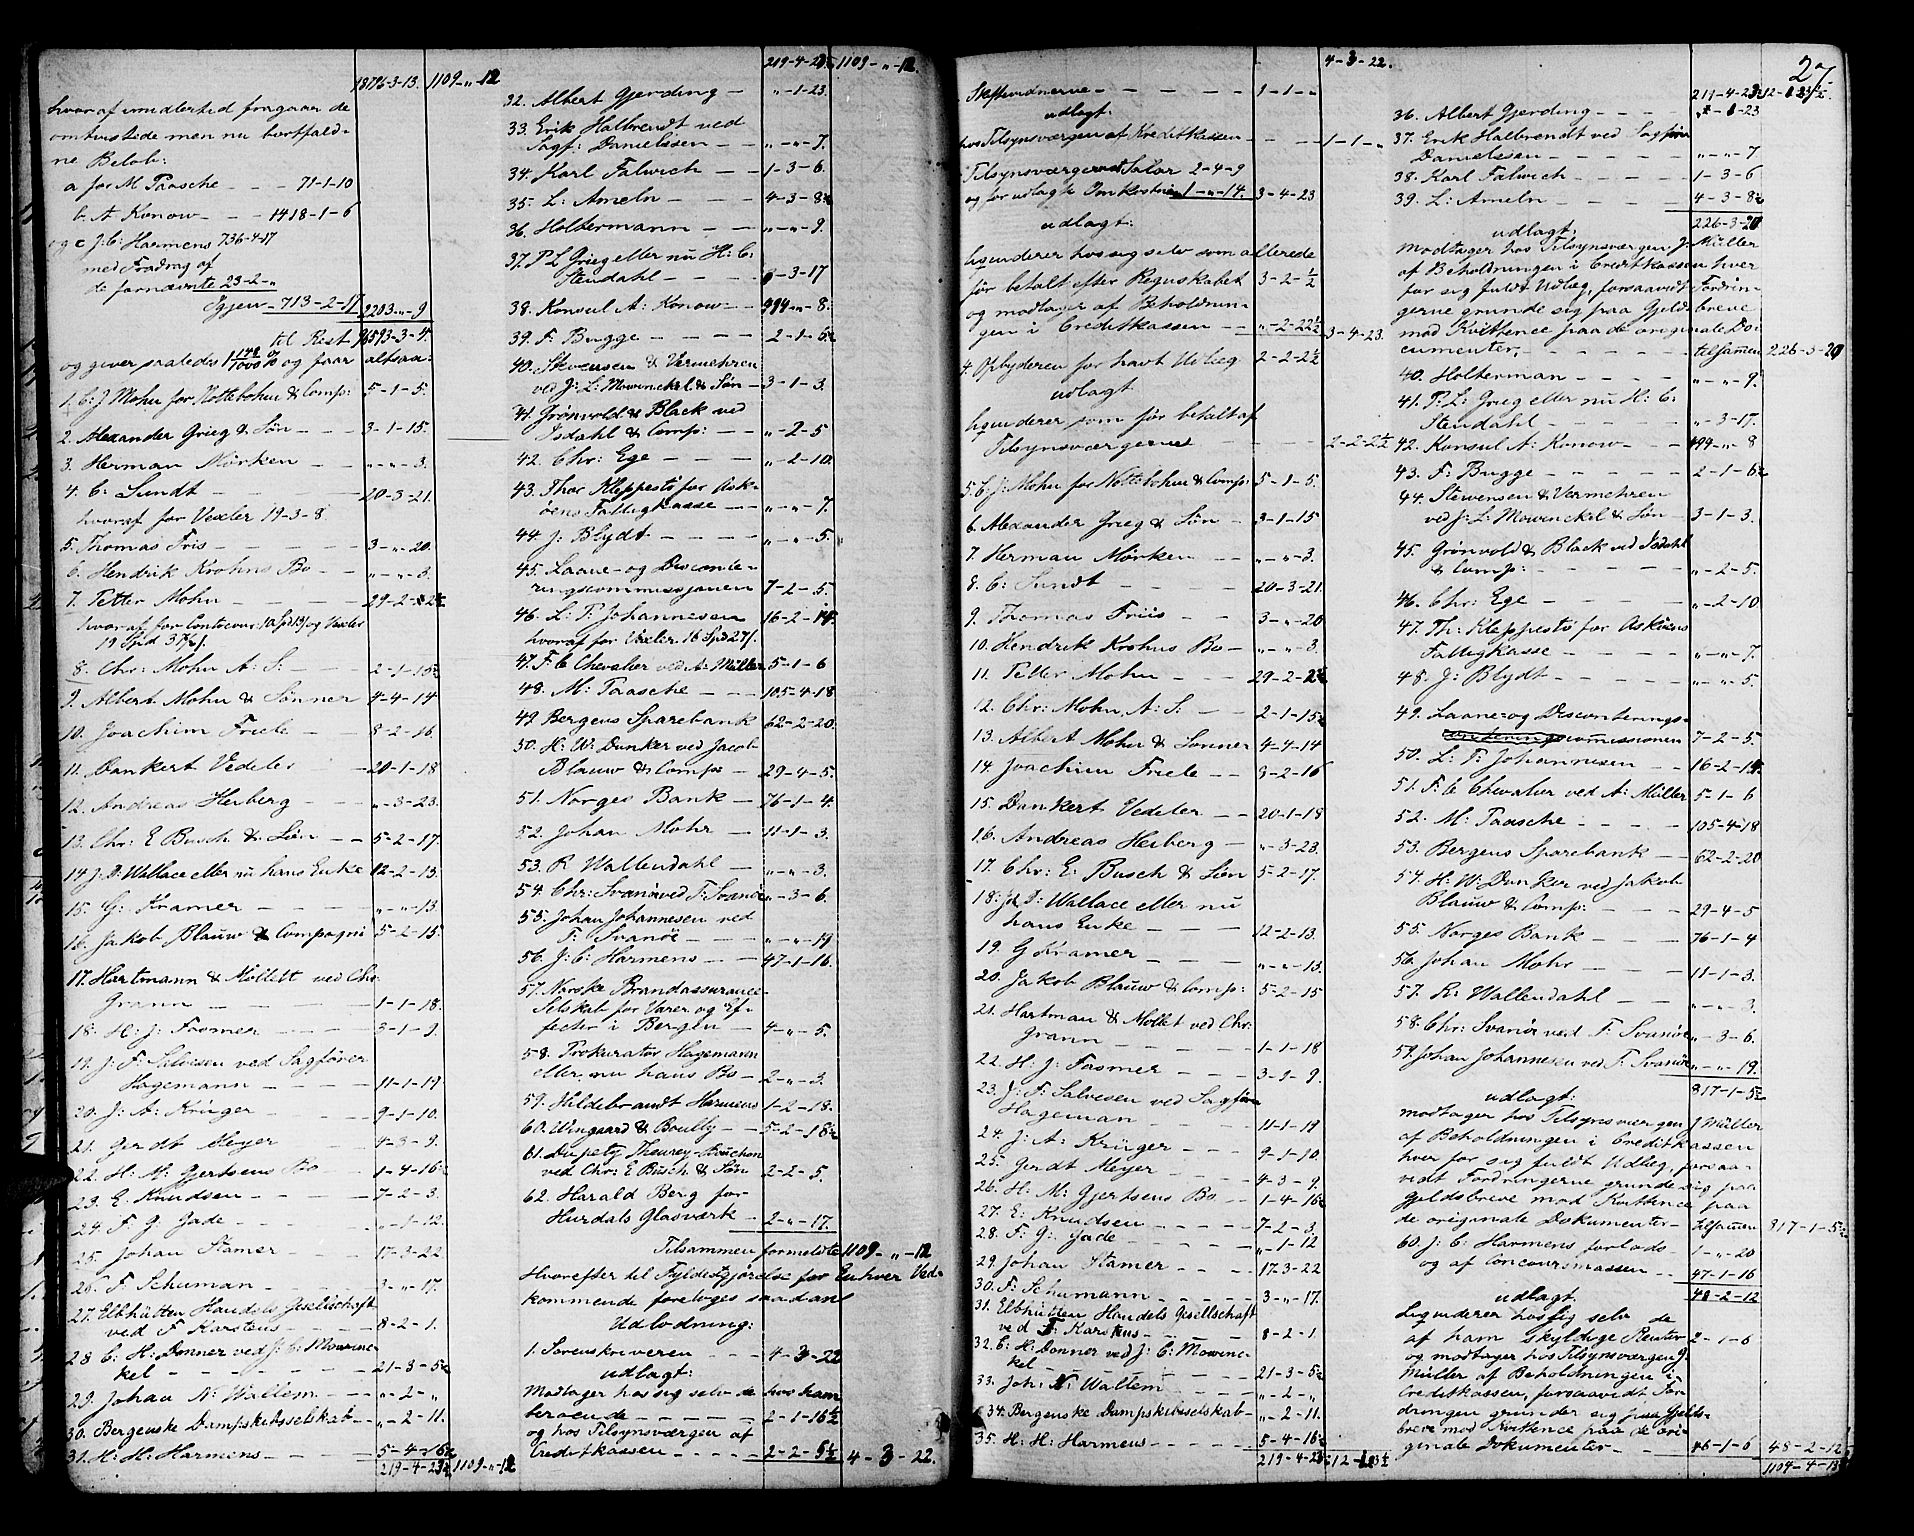 18796-3-13. 1109-„-12
hvoraf imidlertid fragaar de
omtvistede men nu bortfald-
ne Beløb:
a for M Paasche - - - 71-1-10
b. A Konow - - - 1418-1-6
og c J: C: Harmens 736-4-17
med Fradrag af
de fornævnte 23-2-„
Igjen - 713-2-17 2203-„-9
til Rest 96593-3-4.
og giver saaledes og faar altsaa:
1. C: J Mohn for Nottebohm & Comp: 5-1-5.
2. Alexander Grieg & Søn - - - 3-1-15.
3. Herman Mørken - - „-„-3.
4. C: Sundt - - - 20-3-21.
hvoraf for Vexler 19-3-8.
5. Thomas Friis - - - 3-„-20.
6. Hendrik Krohns Bo - - „-„-3.
7. Petter Mohn - - - 29-2-2½
hvoraf for Contocour: 10 Spd 13/ og Vexler
19 Spd
8. Chr: Mohn A: S: - - 2-1-15½
9. Albert Mohn & Sønner 4-4-14
10. Joachim Friele - - 8-2-16.
11. Dankert Vedeler - 20-1-18
12. Andreas Herberg - - „-3-23.
13. Chr: E Busch & Søn - - 5-2-17.
14 J: D: Wallace eller nu hans Enke 12-2-13.
15. G: Kramer - - - „-„-13
16. Jakob Blauw & Compagni 5-2-15.
17. Hartmann & Mollett ved Chr:
Grann - - - 1-1-18.
18. H: J: Fasmer - - - 3-1-9.
19. J: F: Salvesen ved Sagfører
Hagemann - - - 11-1-19
20. J: A: Krüger - - - 9-1-10.
21. Gerdt Meyer - - - 4-3-9.
22. H: M: Gjertsens Bo - 1-4-16½
23. E. Knudsen - - - 7-2-3.
24. F: G: Gade - - - „-1-12.
25. Johan Stamer - - - 17-3-22
26. F: Schuman - - - 3-„-17.
27. Elbhütten Handels Gesellschaft
ved F Karstens - - - 8-2-1.
28 C: H: Donner ved J: C: Mowinc-
kel - - - 21-3-5½
29. Johan N: Wallem - - - „-2-„
30. Bergenske Dampskibsselskab - „-2-11.
31. H: H: Harmens - - - 5-4-16½
219-4-23½ 1109-„-12
219-4-23½ 1109-„-12.
32. Albert Gjerding - - „-1-23.
33. Erik Halbrendt ved
Sagf: Danielssen - - „-„-7.
34. Karl Falwich - - 1-3-6.
35. L: Ameln - - - 4-3-8½
36. Holtermann - - - „-„-9.
37. P L Grieg eller nu H: C:
Stendahl - - - „-3-17
38. Konsul A: Konow - - 494-„-8.
39. F: Bugge - - - 2-1-6½
40. Stevensen & Vermehren
ved J: L: Mowinckel & Søn - 3-1-3.
41. Grønvold & Black ved
Isdahl & Comp: - - „-2-5
42. Chr: Ege - - - „-2-10.
43. Thor Kleppestø for Ask-
øens Fattigkasse - - „-„-7.
44. J: Blydt - - - „-„-5.
45. Laane- og Disconte-
ringskommissjonen 7-2-5.
46. L: P. Johannesen 16-2-14.
hvoraf for Vexler. 16 Spd 27/.
47. F: C Chevalier ved A: Müller 5-1-6
48. M: Paasche - - - 105-4-18
49. Bergens Sparebank 62-2-20.
50. H: W: Dunker ved Jacob
Blauw & Comp: - 29-4-5.
51. Norges Bank - 76-1-4.
52. Johan Mohr - 11-1-3.
53. R Wallendahl - „-„-3.
54. Chr: Svanøe ved F: Svanøe „-3-6.
55. Johan Johannesen ved
F: Svanøe - - - „-„-19
56. J: C: Harmens - - 47-1-16.
57. Norske Brandassurance
Selskab for Varer og Ef-
fecter i Bergen - 4-„-5.
58. Prokurator Hagemann
eller nu hans Bo - 2-„-3.
59. Hildebrandt Harmens 1-2-18.
60. Wingaard & Boully - 5-2-18½
61. Dupety Theurey-Bouchon
ved Chr: E Busch & Søn 2-2-5.
62. Harald Berg for
Hurdals Glasværk - 2-„-17.
Tilsammen formeldte 1109-„-12
Hvorefter til Fyldestgjørelse for Enhver Ved-
kommende foretoges saadan
Udlodning:
1. Sorenskriveren - - 4-3-22
udlagt:
Modtager hos sig selv de hos ham
beroende - - - - 2-1-16½
og hos Tilsynsværgen af
Creditkassen - - - 2-2-5½ 4-3-22.
27.
4-3-22.
Skiftevidnerne - - - - - 1-1-„
udlagt:
hos Tilsynsværgen af Kreditkassen - - - 1-1-„
3. Tilsynsværgens Salær 2-4-9
og for udlagte Omkostnin 1-„-14. 3-4-23
udlagt:
Liqviderer hos sig selv som allerede
før betalt efter Regnskabet 3-2-½
og modtager af Beholdnin-
gen i Creditkassen - - „-2-22½ 3-4-23.
4. Opbyderen for havt Udlæg 2-2-2½
udlagt
Liqviderer som før betalt af
Tilsynsværgerne - - - 2-2-2½
5. C: J: Mohn for Nottebohm & Comp: 5-1-5.
6. Alexander Grieg & Søn - 3-1-15
7. Herman Mørken - - „-„-3.
8. C: Sundt - - 20-3-21.
9. Thomas Friis - - 3-„-20
10. Hendrik Krohns Bo - „-„-3.
11. Petter Mohn - - - 29-2-2½
12. Chr: Mohn, A: S: - - 2-1-15½
13. Albert Mohn & Sønner 4-4-14
14. Joachim Friele - - 8-2-16
15. Dankert Vedeler - - 20-1-18
16. Andreas Herberg - „-3-23.
17. Chr: E: Busch & Søn 5-2-17.
18. J: D: Wallace eller nu
hans Enke - - - - 12-2-13.
19. G Kramer - - - „-„-13.
20. Jakob Blauw & Comp: 5-2-15
21. Hartman & Mollet ved Chr:
Grann - - - - 1-1-18
22. H: J: Fasmer - - - 3-1-9.
23. J: F: Salvesen ved Sagfører
Hageman - - - - 11-1-19
24. J: A: Krüger - - - 9-1-10.
25. Gerdt Meyer - - - 4-3-9.
26. H: M: Gjertsens Bo - - 1-4-16½
27. E: Knudsen - - - - 7-2-3.
28. F: G: Gade - - - - „-1-12
29. Johan Stamer - - - 17-3-22
30. F: Schumann - - - 3-„-17.
31. Elbhütten Handels Gesellschaft
ved F: Karstens - - - 8-2-1.
32. C: H: Donner ved J: C: Mowinc-
kel - - - - 21-3-5½
33. Joh: N: Wallem - - - „-2-„
34. Bergenske Dampskibsselskab - „-2-11.
35. H: H: Harmens - - - 5-4-16½
219-4-23½
219-4-23½
36. Albert Gjerding - - - „-1-23
37. Erik Halbrendt ved Sagfører
Danielssen - - - - „-„-7
38. Karl Falwich - - - 1-3-6
39. L: Ameln - - - - 4-3-8½
udlagt: 226-3-20
modtager hos Tilsynsværgen J: Müller
af Beholdningen i Creditkassen hver
for sig fuldt Udlæg, forsaavidt Fordrin-
gerne grunde sig paa Gjeldsbreve
mod Kvittence paa de originale Do-
cumenter, - - - tilsammen 226-3-20
40. Holterman - - - - „-„-9.
41. P: L: Grieg eller nu H: C:
Stendahl - - - - „-3-17.
42. Konsul A: Konow - - 494-„-8
43. F: Bugge - - - - 2-1-6½
44. Stevensen & Vermehren
ved J: L: Mowinckel & Søn - 3-1-3.
45. Grønvold & Black ved Isdahl
& Comp: - - - „-2-5.
46. Chr: Ege - - - „-2-10
47. Th: Kleppestø for Askøens
Fattigkasse - - - „-„-7.
48. J: Blydt - - - „-„-5.
49. Laane- og Disconterings-
commissionen 7-2-5.
50. L: P: Johannesen - - 16-2-14.
51. F: C Chevalier ved A: Müller 5-1-6
52. M: Paasche - - - - 105-4-18
53. Bergens Sparebank - - 62-2-20
54. H: W: Dunker ved Jakob
Blauw & Comp: - - 29-4-5
55. Norges Bank - - - 76-1-4
56. Johan Mohr - - - 11-1-3.
57. R: Wallendahl - - - „-„-3.
58. Chr: Svanøe ved F: Svanøe „-3-6.
59. Johan Johannesen ved F: Svanøe „-„-19.
udlagt: 817-1-5½
modtager hos Tilsynsværgen J Müller
af Beholdningen i Creditkassen
hver for sig fuldt Udlæg, forsaa-
vidt Fordringerne grunde sig paa
Gjeldsbreve mod Kvittence paa
de originale Dokumenter - tilsammen 817-1-5½
60. J: C: Harmens forlods - 1-„-20
og af Concoursmassen - - 47-1-16
udlagt 48-2-12
Liqviderer hos sig selv de
af ham skyldige Renter 2-1-6
og modtager hos Tilsynsværgen J.
Müller af Beholdningen i
Creditkassen, forsaavidt For-
dringen grunder sig paa Gjelds-
breve mod Kvittence paa de ori-
ginale Dokumenter - - - 46-1-6 48-2-12